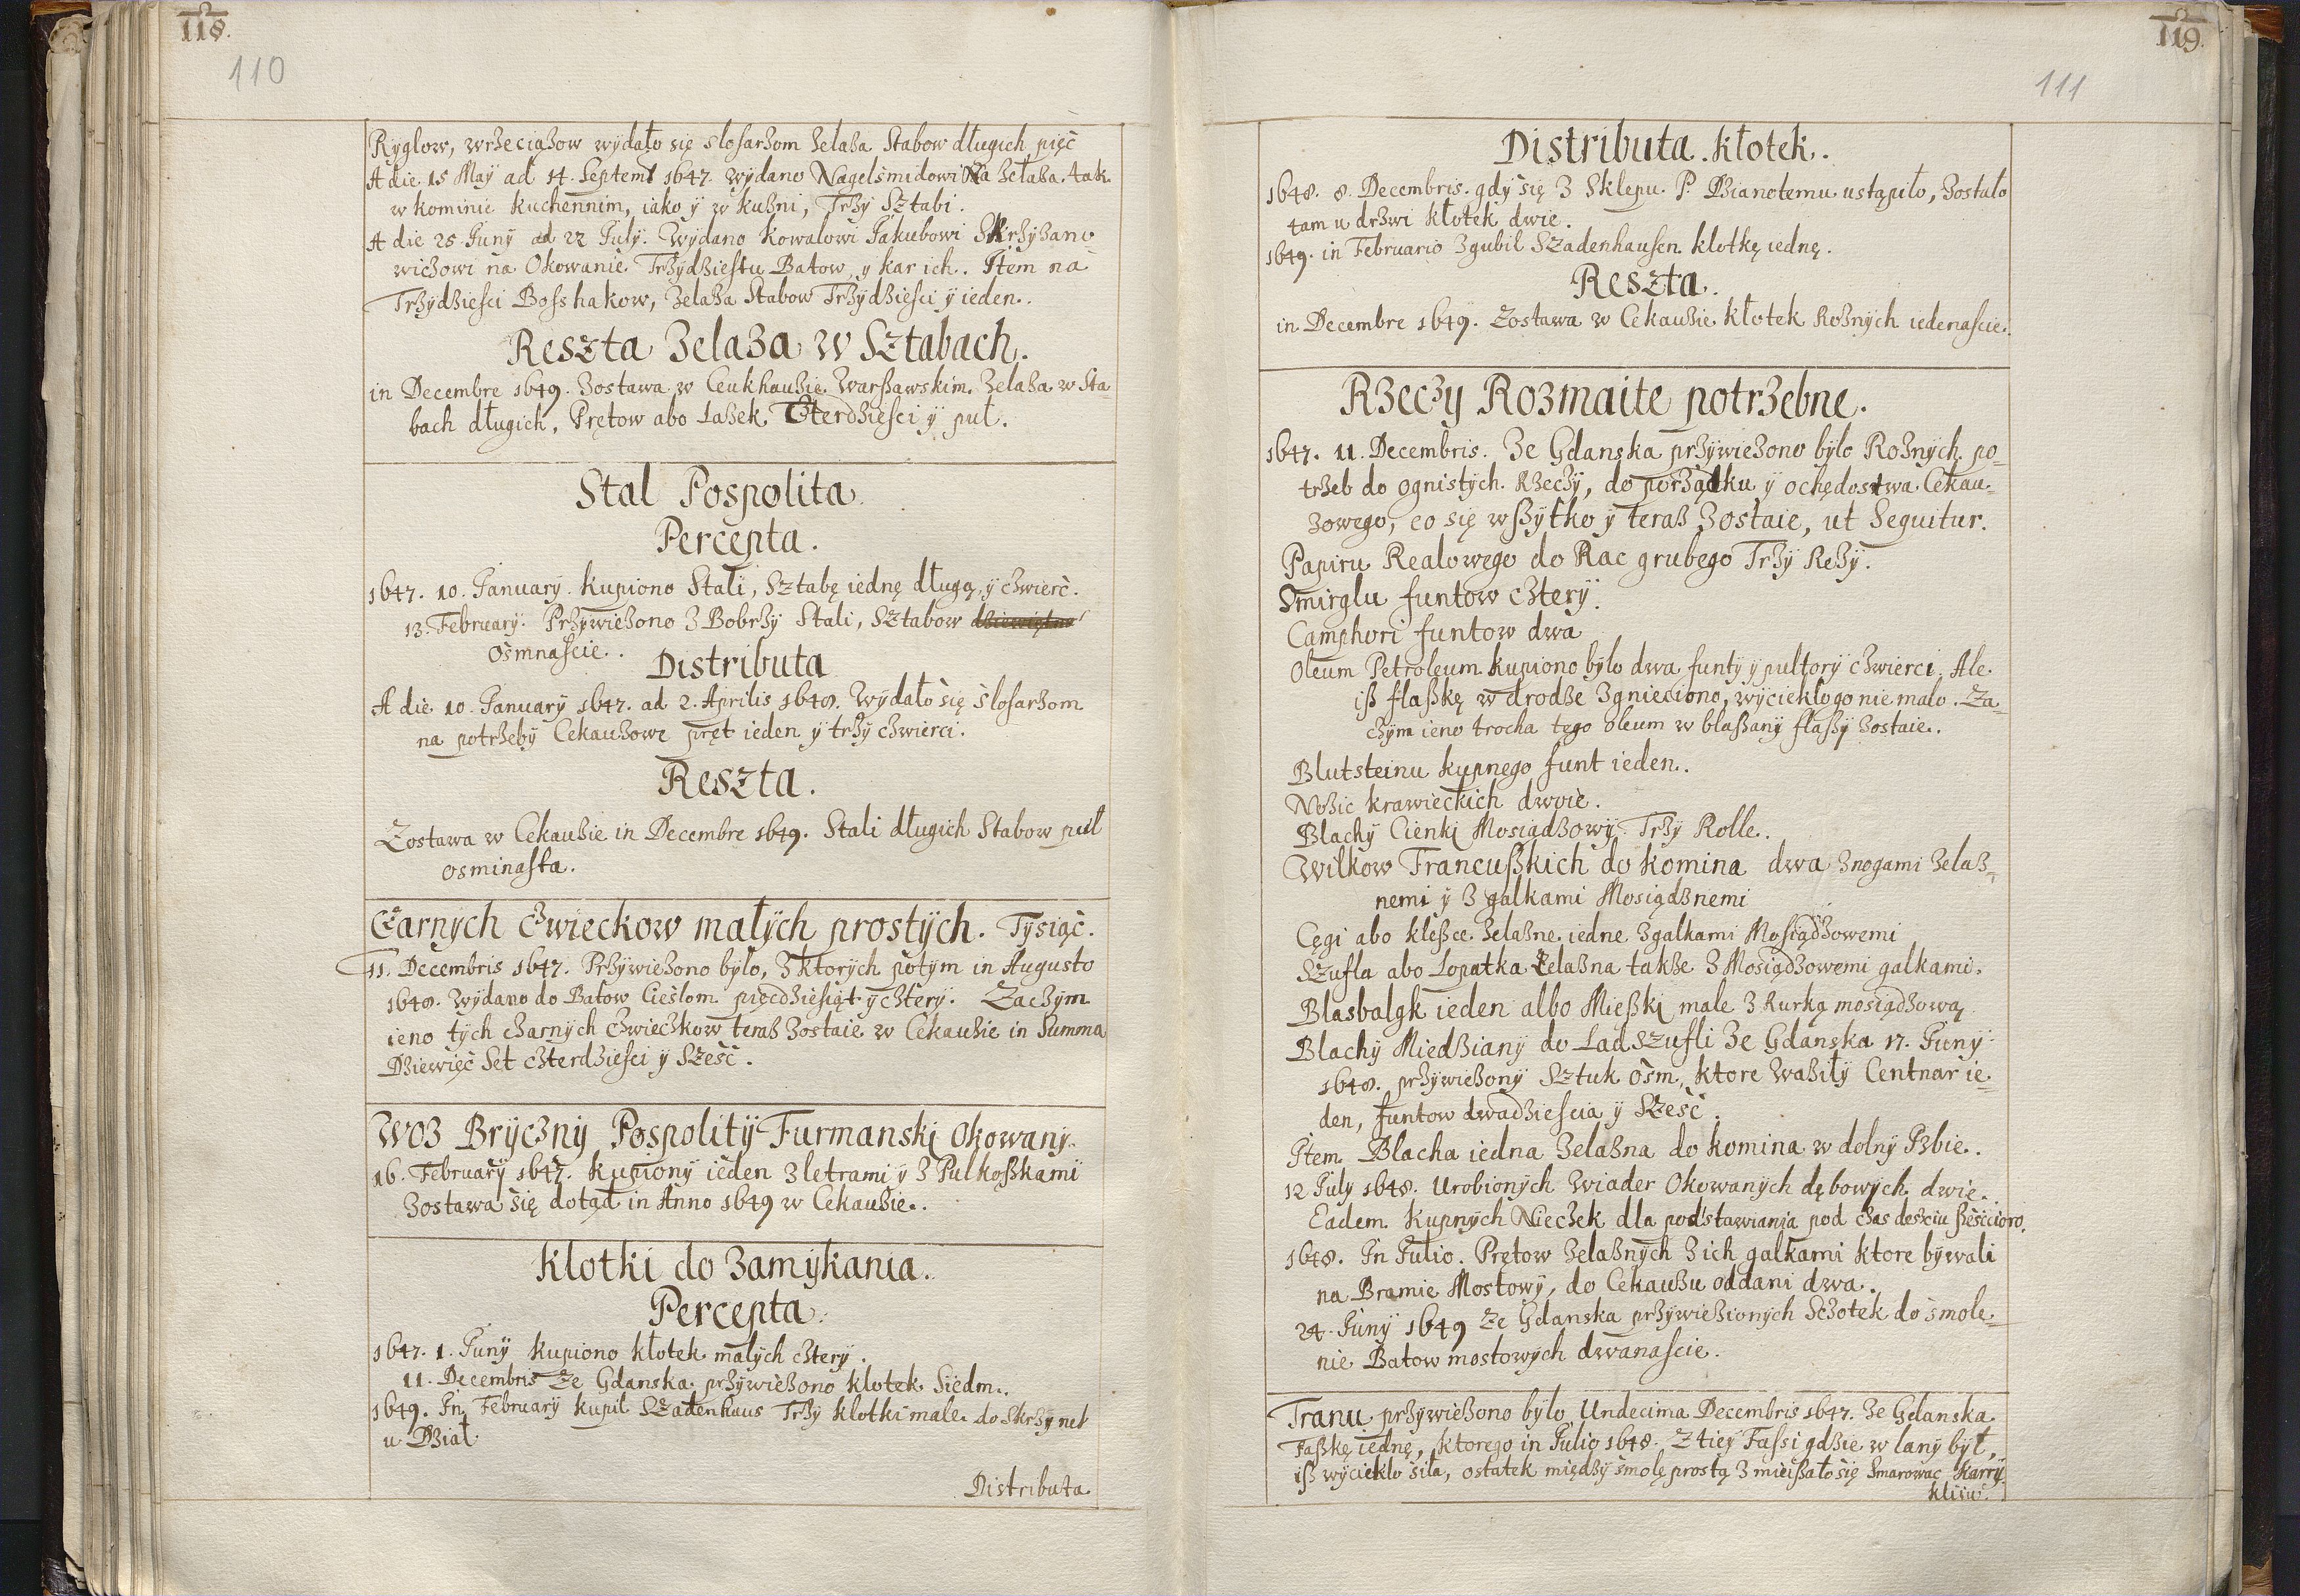 118.
110
Ryglow, wrzeciązow wydało się slosarzom żelaza Stabow długich pięć
A die 15 Maÿ ad 14. Septemb 1647. wydano Nagelsmidowi Na żelaza. tak
w kominie kuchennim, iako ÿ w kuzni, Trzÿ Sztabi.
A die 25 Junÿ ad 22 Julÿ. Wydano kowalowi Jakubowi Skrzyzano
wiczowi na Okowanie Trzÿdziestu Batow, ÿ kar ich. Item na
Trzÿdziesci Bosshakow, żelaza Stabow Trzÿdziesci ÿ ieden.
Reszta żelaza w Sztabach.
in Decembre 1649. zostawa w Ceukhauzie Warßawskim. żelaza w Sta
bach długich, Prętow abo Lasek Czterdziesci ÿ puł.
Stal Pospolita
Percepta.
1647. 10. Januarÿ. kupiono Stali, Sztabę iednę długą, ÿ czwierć.
13. Februarÿ. Przÿwieziono z Bobrzÿ Stali, Sztabow
osmnascie.
Distributa
A die 10. Januarÿ 1647. ad 2. Aprilis 1648. Wÿdało się slosarzom
na potrzebÿ Cekauzowe pręt ieden ÿ trzÿ czwierci.
Reszta.
Zostawa w Cekauzie in Decembre 1649. Stali długich Stabow puł
osminasta.
Czarnÿch czwieckow małÿch prostÿch. Tÿsiąc.
11. Decembris 1647. Przÿwieziono bÿło, z ktorÿch potÿm in Augusto
1648. wydano do Batow Cieslom pięcdziesiąt ÿ czterÿ. Zaczÿm
ieno tÿch czarnÿch czwieczkow teraz zostaie w Cekauzie in Summa
Dziewięć Set czterdziesci ÿ Szesć.
Woz Brÿcznÿ Pospolitÿ Furmanski Okowanÿ.
16. Februarÿ 1647. kupionÿ ieden z letrami ÿ z Pulkoßkami
zostawa się dotąd in Anno 1649 w Cekauzie.
Klotki do zamÿkania.
Percepta.
1647. 1. Junÿ kupiono klotek małÿch czterÿ.
11. Decembris Ze Gdanska przÿwieziono klotek Siedm.
1649. In Februarÿ kupił Szadenhaus Trzÿ klotki małe do Skrzÿnek
u Dział
Distributa
119.
111
Distributa. klotek.
1648. 8. Decembris. gdÿ się z Sklepu P. Dzianotemu ustąpiło, zostało
tam u drzwi klotek dwie.
1649. in Februario zgubił Szadenhausen klotkę iednę.
Reszta.
in Decembre 1649. Zostawa w Cekauzie klotek Roznÿch iedenascie.
Rzeczÿ Rozmaite potrzebne.
1647. 11. Decembris. Ze Gdanska przÿwieziono bÿło Roznÿch po-
trzeb do ognistÿch Rzeczÿ, do porządku ÿ ochędostwa Cekau-
zowego, co się wßÿtko ÿ teraz zostaie, ut Sequitur.
Papiru Realowego do Rac grubego Trzÿ Rezÿ.
Smirglu funtow czterÿ.
Camphori funtow dwa
Oleum Petroleum kupiono bÿło dwa funtÿ ÿ pułtorÿ czwierci. Ale
iß flaßkę w drodze zgnieciono, wÿciekło go nie mało. Za-
czÿm ieno trocha tego oleum w blaßanÿ flaßÿ zostaie.
Blutsteinu kupnego funt ieden.
Nozic krawieckich dwoie.
Blachÿ Cienki Mosiądzowÿ Trzÿ Rolle.
Wilkow Francußkich do komina dwa z nogami żelaz-
nemi ÿ z galkami Mosiądznemi
Cęgi abo kleßce żelazne iedne z galkami Mosiądzowemi
Szufla abo Lopatka żelazna takze z Mosiądzowemi galkami.
Blasbalgk ieden albo Mießki małe z Rurką mosiądzową
Blachÿ Miedzianÿ do Lad Szufli Ze Gdanska 17. Junÿ
1648. przÿwiezionÿ Sztuk osm, ktore wazÿłÿ Centnar ie-
den, funtow dwadziescia ÿ Szesć.
Item Blacha iedna żelazna do komina w dolnÿ Izbie.
12 Julÿ 1648. Urobionÿch Wiader Okowanÿch dębowÿch dwie.
Eadem kupnÿch Nieczek dla podstawiania pod czas deszczu ßesccioro.
1648. In Julio. Prętow żelaznÿch z ich galkami ktore bÿwali
na Bramie Mostowÿ, do Cekauzu oddani dwa.
24. Junÿ 1649 Ze Gdanska przÿwiezionÿch Sczotek do smole-
nie Batow mostowÿch dwanascie.
Tranu przÿwieziono bÿło Undecima Decembris 1647. Ze Gdanska
Faßkę iednę, ktorego in Julio 1648. Z tieÿ Fassi gdzie wlanÿ bÿł,
iß wÿciekło siła, ostatek międzÿ smolę prostą zmießało się Smarowac Karrÿ
kliiu.